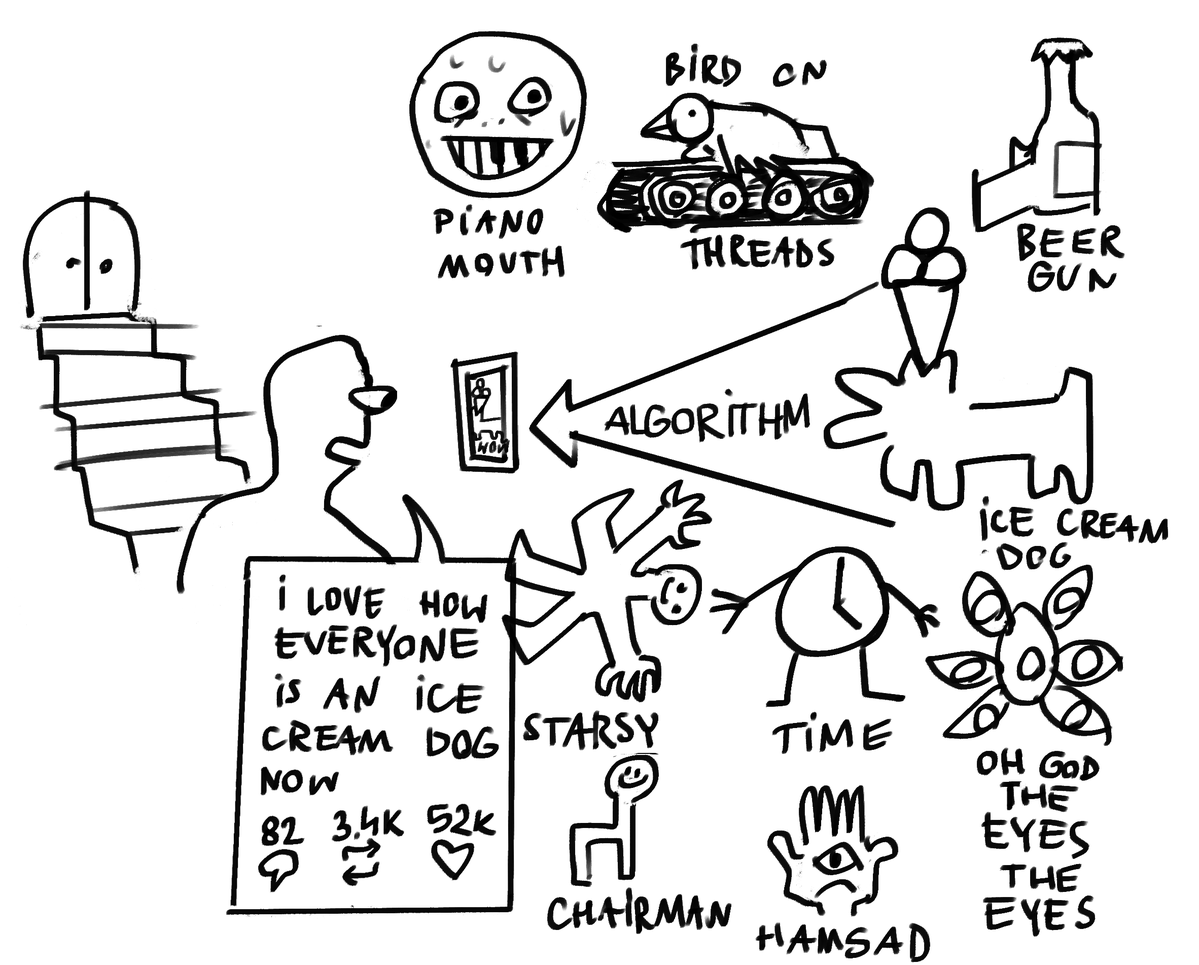 BiRD ON
THREADS
PiANO
MOUTH
BEER
GUN
ALGORiTHM
WOW
iCE CREAM
DOG
i LOVE HOW
EVERYONE
iS AN iCE
CREAM DOG
NOW
82 3.4K 52K
STARSY
TiME
OH GOD
THE
EYES
THE
EYES
CHAiRMAN
HAMSAD